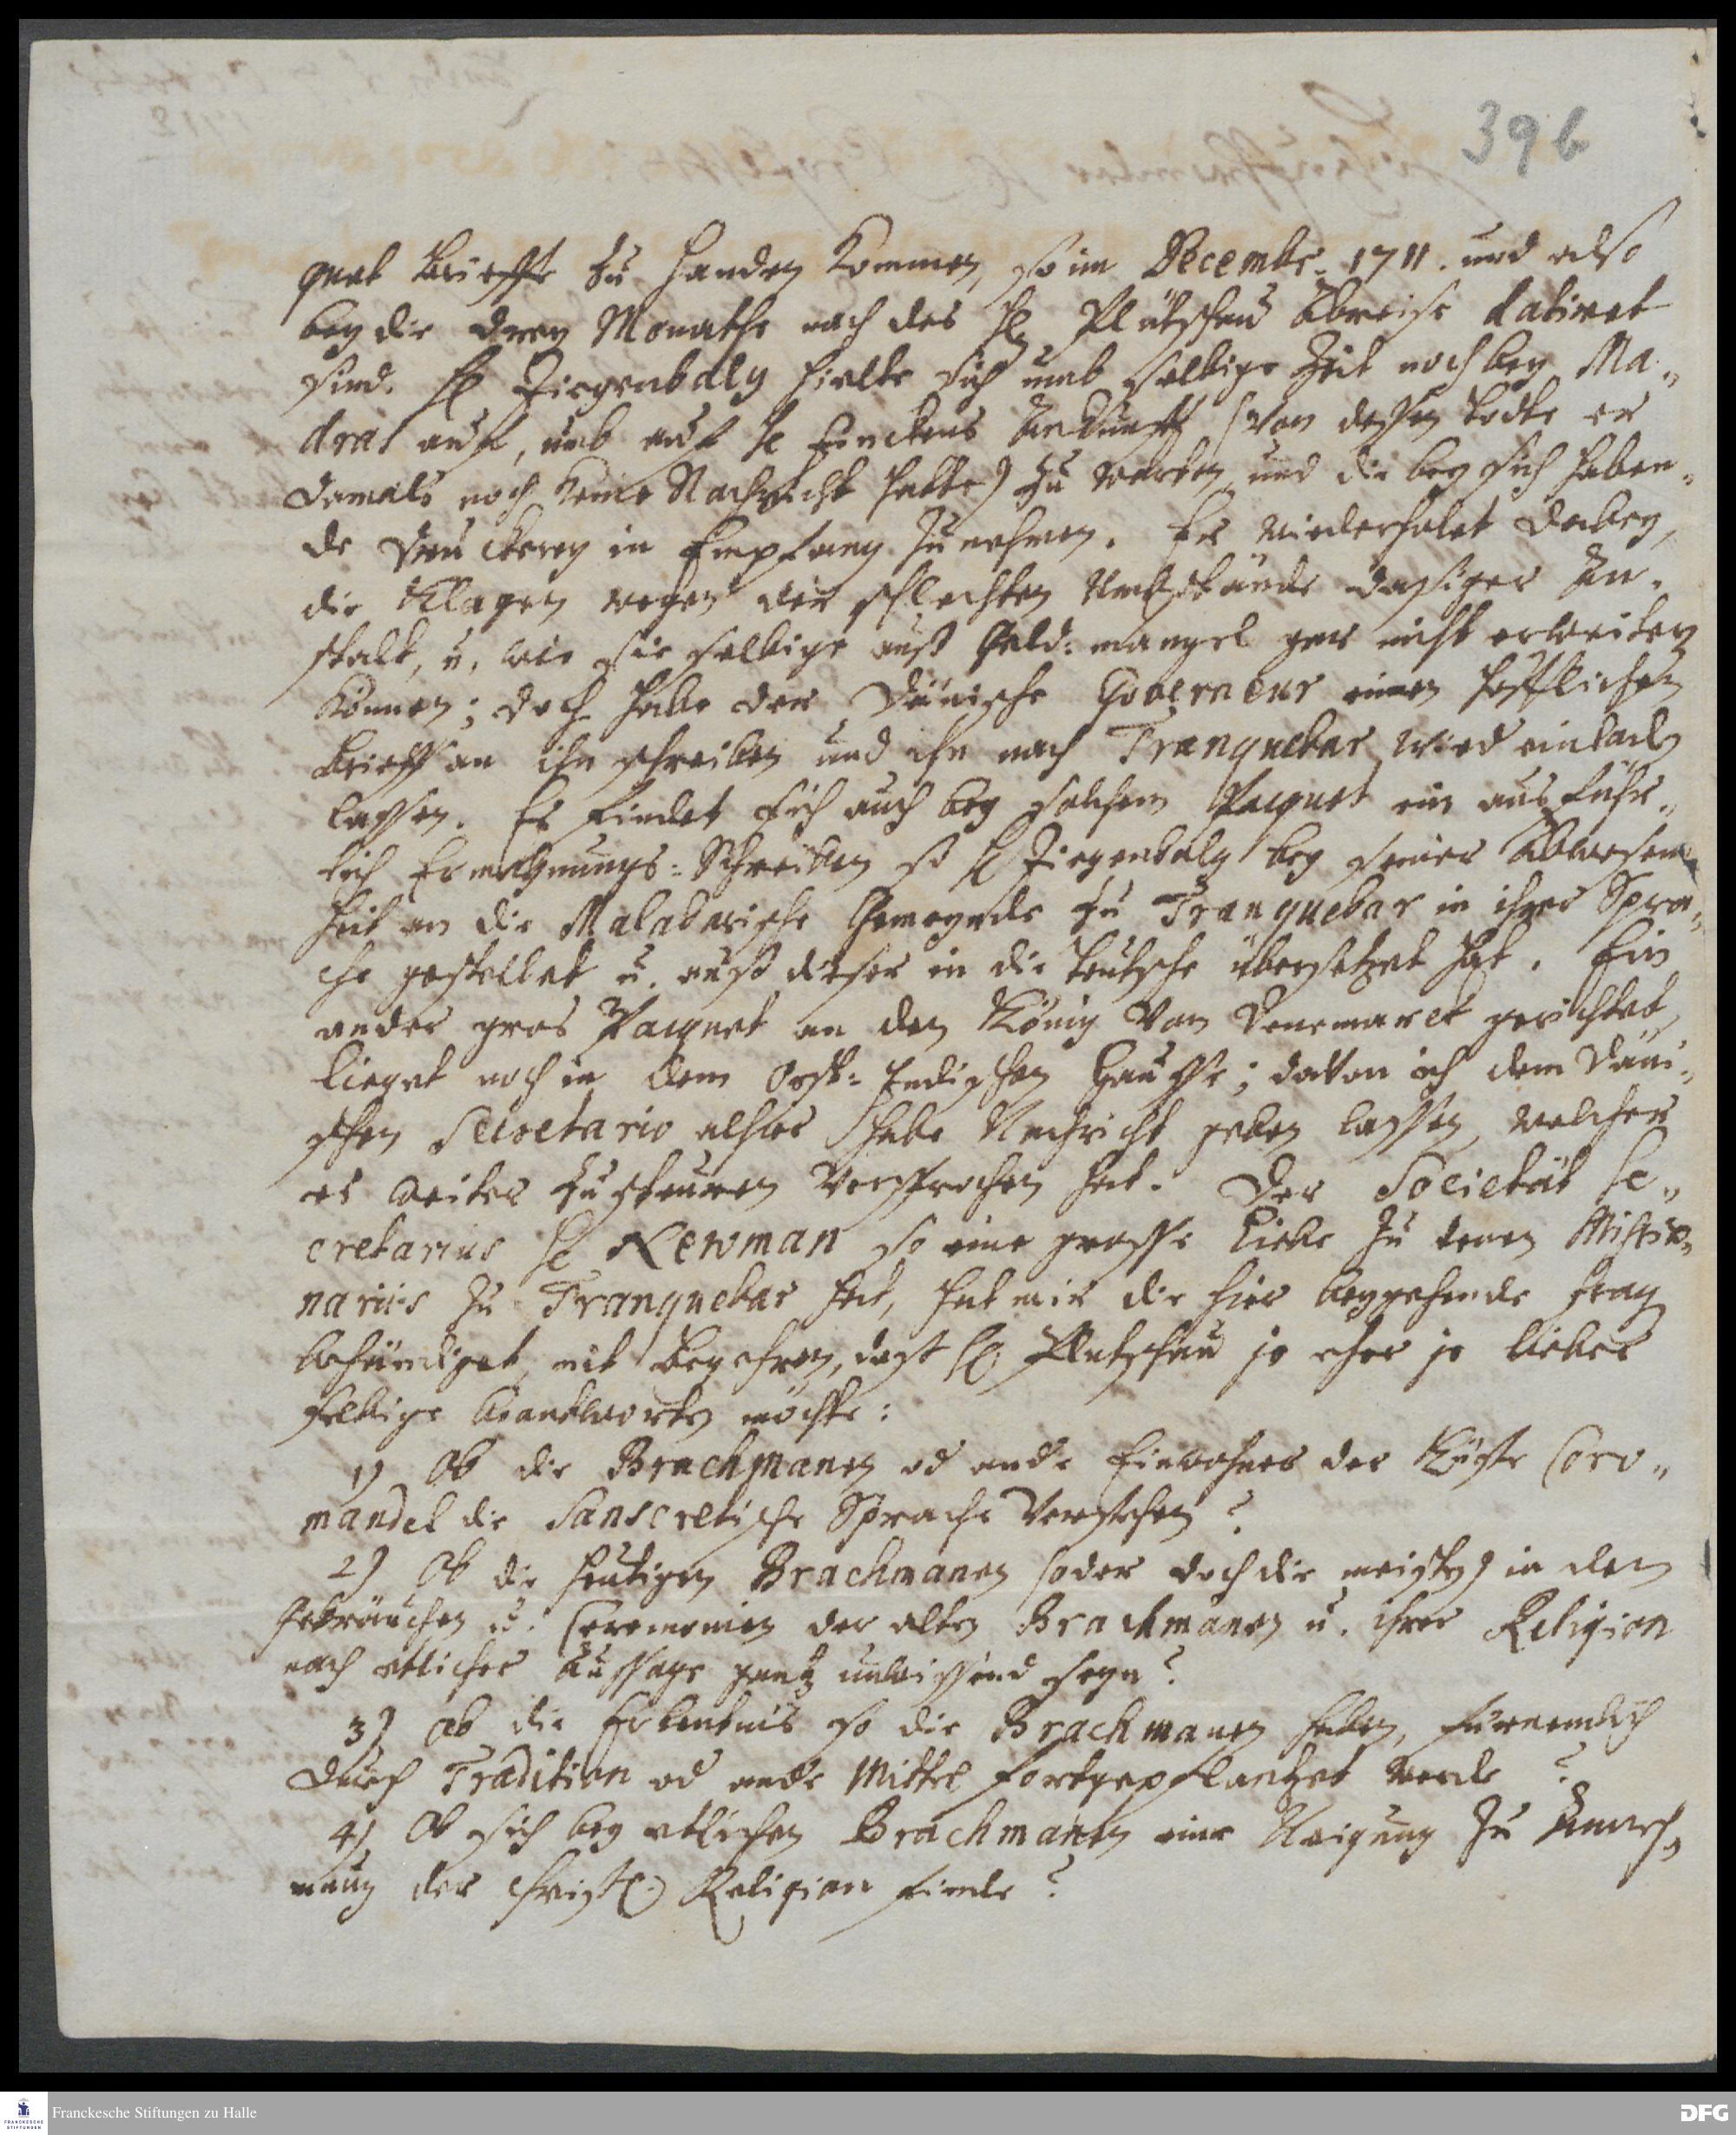 396
quet Brieffe zu Handen kommen, so im Decembr. 1711. und also
bey die drey Monathe nach des H. Plütschau Abreise datiret
sind. H. Ziegenbalg hielte sich umb selbige Zeit noch bey Ma„
dras auf, umb auf H. Finckens Ankunfft (von dessen Todte er
damals noch keine Nachricht hatte) zu warten, und die bey sich haben„
de Druckerey in Empfang zu nehmen. Er wiederholet dabey,
die Klagen wegen der schlechten Umbstände dasiger An„
stalt, u. wie sie selbige auß Geld: mangel gar nicht erweitern
können; doch habe der Dänische Goberneur einen höfflichen
Brieff an ihn schreiben und ihn nach Tranquebar wied einladen
lassen. Es findet sich auch bey solchem Pacquet ein ausführ„
lich Ermahnungs: Schreiben so H Ziegenbalg bey seiner Abwesen
heit an die Malabarische Gemeynde zu Tranquebar in ihrer Spra„
che gestellet u. auß dieser in die teutsche übersetzet hat. Ein
ander gros Pacquet an den König von Denemarck gerichtet,
lieget noch in dem Ost: Indischen Hausse; davon ich dem Däni„
schen Secretario alhier habe Nachricht geben lassen, welcher
es weiter zu steuren versprochen hat. Der Societät Se„
cretarius H. Newman so eine grosse Liebe zu denen Missio„
nariis zu Tranquebar hat, hat mir die hier beygehende Frag
behändiget, mit Begehren, dast H. Plutschau je eher je lieber
selbige beantworten möchte:
1) Ob die Brachmanen od andr Einwohner der Küste Coro„
mandel die Sanscretische Sprache verstehen?
2) Ob die heutigen Brachmanen (oder doch die meisten) in den
Gebräuchen u. Ceremonien der alten Brachmanen u. ihrer Religion
nach etlicher Aussage gantz unwissend seyn?
3) Ob die Erkentnis so die Brachmanen haben, furnemlich
durch Tradition od andr Mittel fortgepflantzet werde?
4) Ob sich bey etlichen Brachmanen eine Neigung zu Anneh„
mung der Christl. Religion finde?
Franckesche Stiftungen zu Halle
FRANCKESCHE STIFTUNGEN
DFG